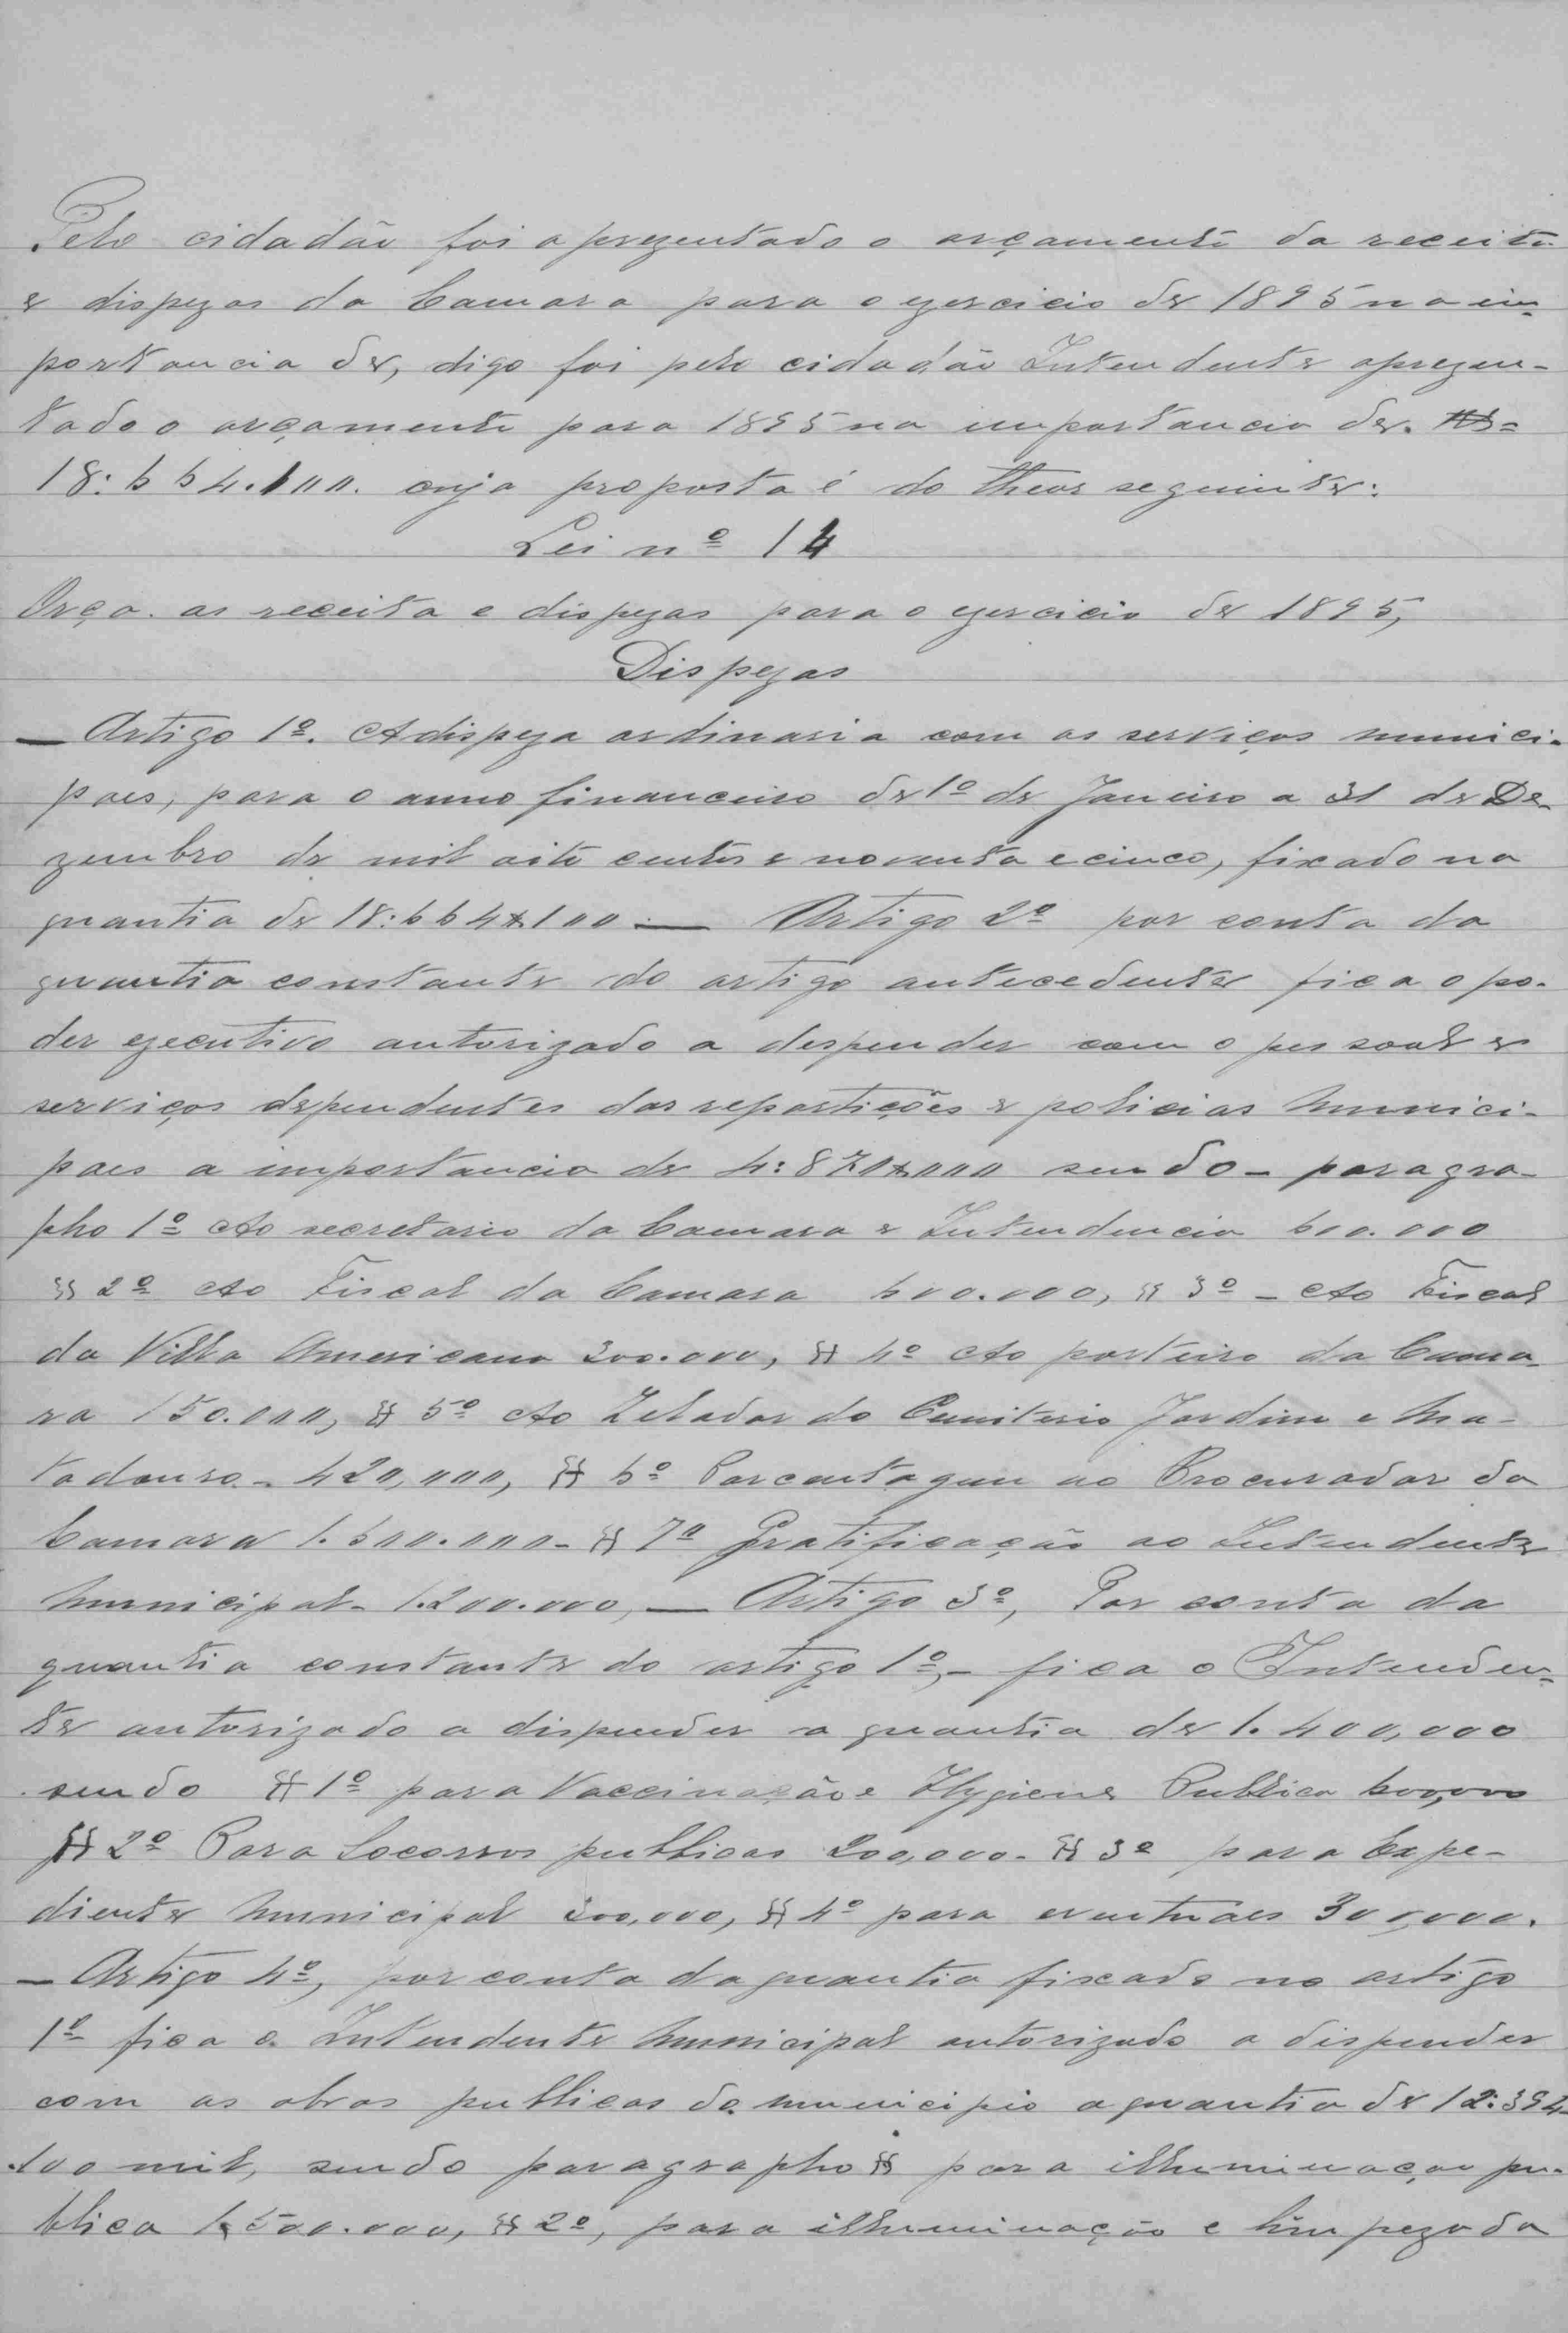 Pelo cidadão foi aprezentado o orçamento da receita
e dispezas da Camara para o ezercicio de 1895 na im-
portancia de, digo foi pelo cidadão Intendente aprezen-
tado o orçamento para 1895 na importancia de. Rs=
18:664.100. cuja proposta é do theor seguinte:
Lei nº 14
Orça as receita e dispezas para o ezercicio de 1895,
Dispezas
— Artigo 1º. A dispeza ordinaria com os serviços munici-
paes, para o anno financeiro de 1º de Janeiro a 31 de De-
zembro de mil oito centos e noventa e cinco, fixado na
quantia de 18:664$100 — Artigo 2º por conta da
quantia constante do artigo antecedente fica o po-
der ezecutivo autorizado a despender com o pessoal e
serviços dependentes das repartições e policias munici-
paes a importancia de 4:870$000 sendo - paragra-
pho 1º Ao secretario da Camara e Intendencia 600.000
§§ 2º Ao Fiscal da Camara 600.000, §§ 3º - Ao Fiscal
da Villa Americana 300.000, §§ 4º Ao porteiro da Cama-
ra 150.000, §§ 5º Ao Zelador do Cemiterio Jardim e Ma-
tadouro - 420,000, §§ 6º Porcentagem ao Procurador da
Camara 1.600.000 - §§ 7º Gratificação ao Intendente
Municipal - 1.200.000, — Artigo 3º, Por conta da
quantia constante do artigo 1º, - fica o Intenden-
te autorizado a dispender a quantia de 1.400,000
sendo §§ 1º para Vaccinação e Hygiene Publica 600,000
§§ 2º Para Socorros publicos 200,000 - §§ 3º para Expe-
diente Municipal 300,000, §§ 4º para eventuaes 300,000.
— Artigo 4º, por conta da quantia fixada no artigo
1º fica o Intendente Municipal autorizado a dispender
com as obras publicas do municipio a quantia de 12:394
.100 mil, sendo paragrapho §§ para illuminação pu-
blica 1.500.000, §§ 2º, para illuminação e limpeza da